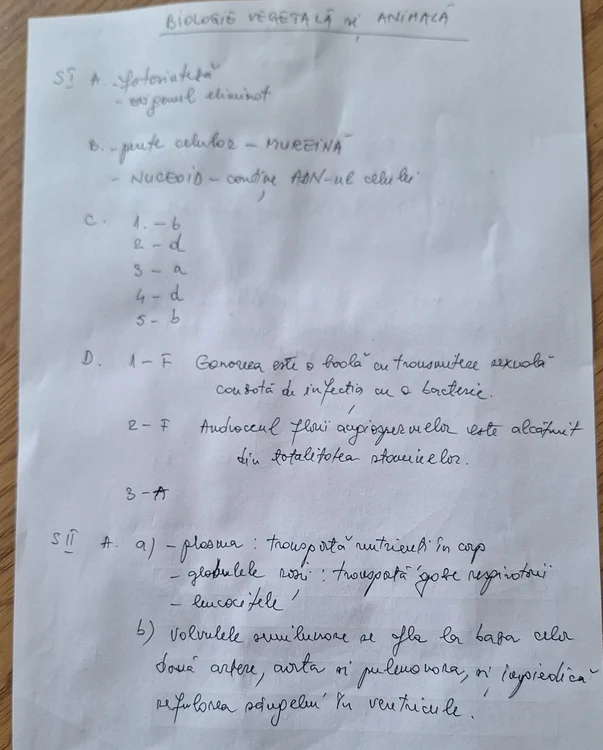 BIOLOGIE VEGETALĂ și ANIMALĂ
SI A. - fotosinteză
- oxigenul eliminat
B. - perete celular - MUREINĂ
- NUCEOID - conține ADN-ul celulei
C. 1. - b
2 - d
3 - a
4 - d
5 - b
D. 1 - F Gonoreea este o boală cu transmitere sexuală
cauzată de infecția cu o bacterie.
2 - F Androceul florii angiospermelor este alcătuit
din totalitatea staminelor.
3 - A
SII A. a) - plasma : transportă nutrienți în corp
- globulele roșii : transportă gaze respiratorii
- leucocitele
b) Valvulele semilunare se afla la baza celor
două artere, aorta și pulmonara, și împiedică
refularea sângelui în ventricule.